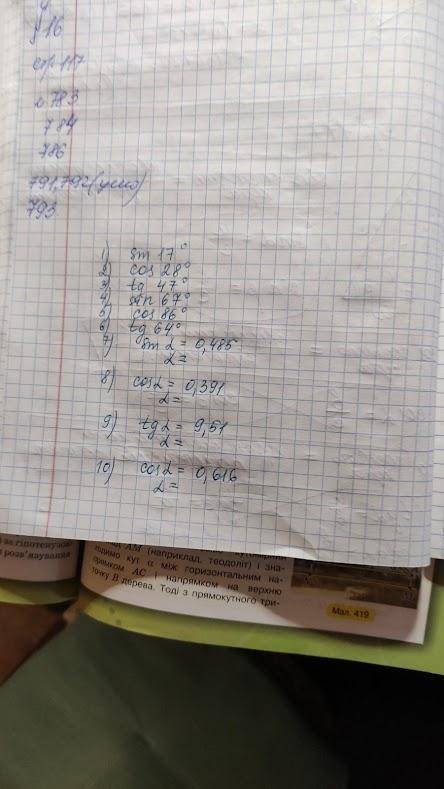 §16
стр 117
№ 783
784
786
791,792 (усно)
793
1) sin 17°
2) cos 28°
3) tg 47°
4) sin 67°
5) cos 86°
6) tg 64°
7) sin α = 0,485
α =
8) cos α = 0,391
α =
9) tg α = 9,51
α =
10) cos α = 0,616
α =
за гіпотенузою
розв'язування
AM (наприклад, теодоліт) і зна-
ходимо кут α між горизонтальним на-
прямком AC і напрямком на верхню
точку B дерева. Тоді з прямокутного три-
Мал. 419